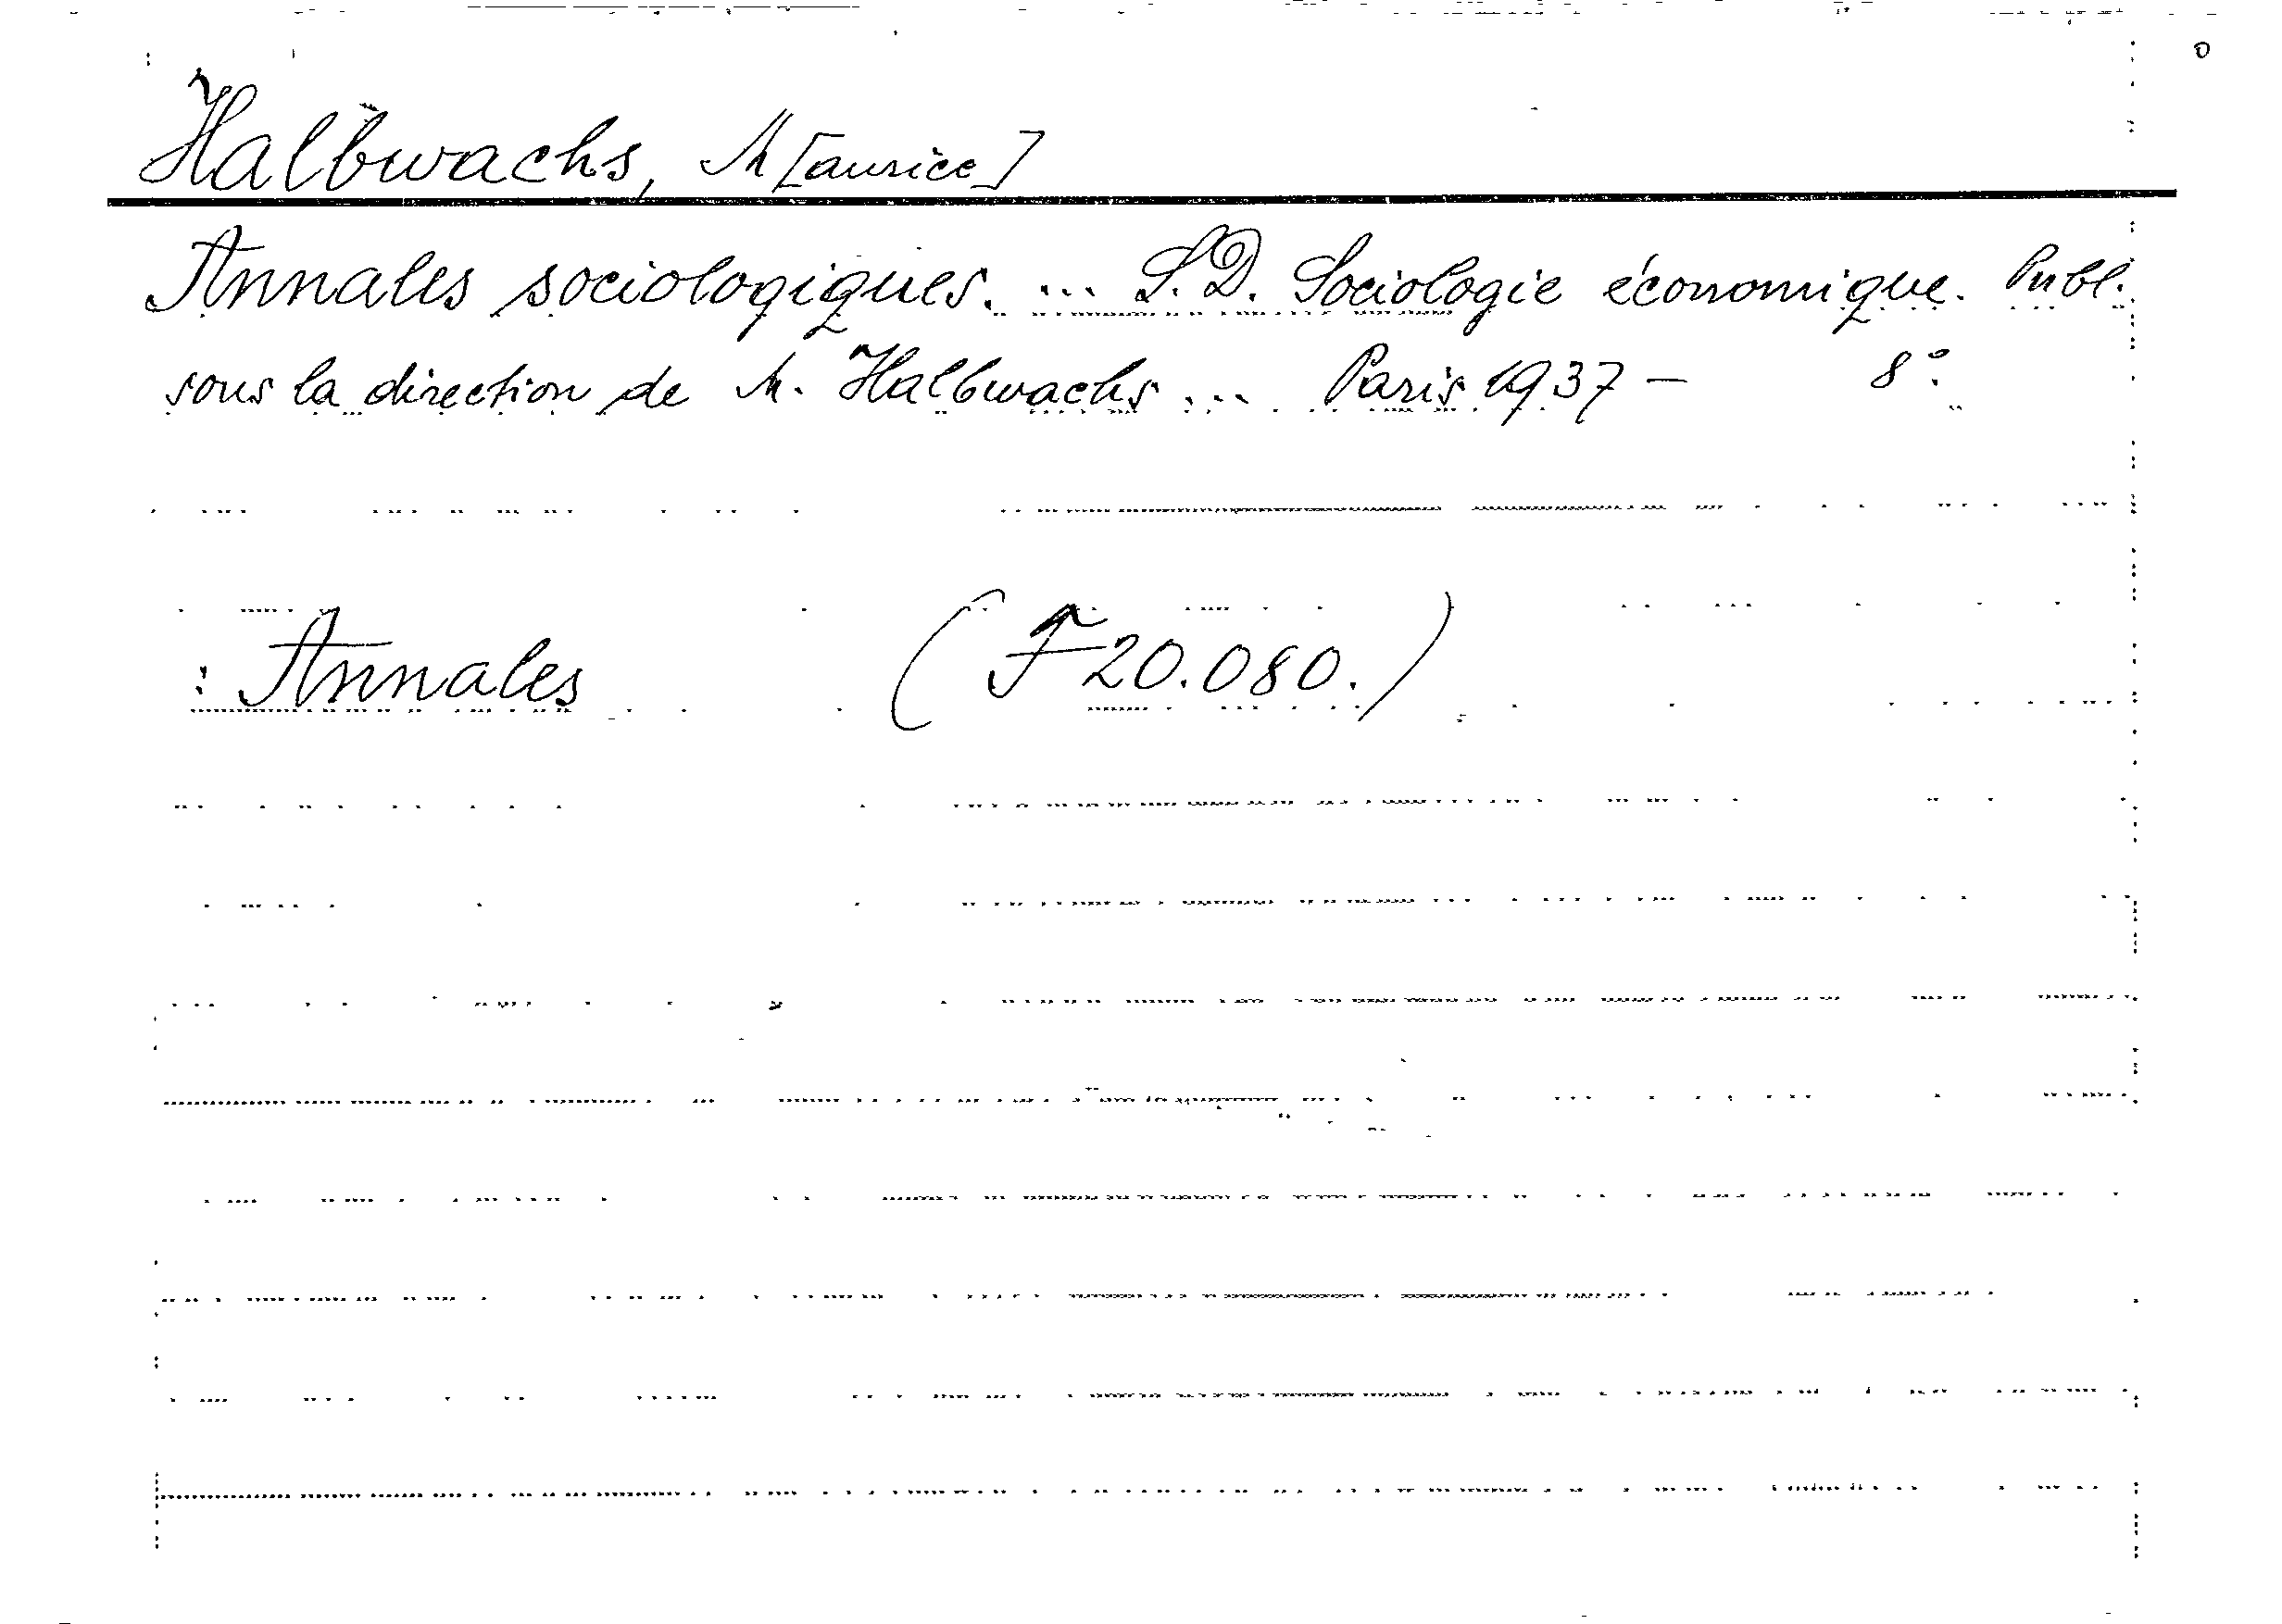 Halbwachs, M[aurice]
Annales sociologiques. ... S. D. Sociologie économique. Publ.
sous la direction de M. Halbwachs ... Paris 1937 – 8°.
: Annales (F 20.080.)